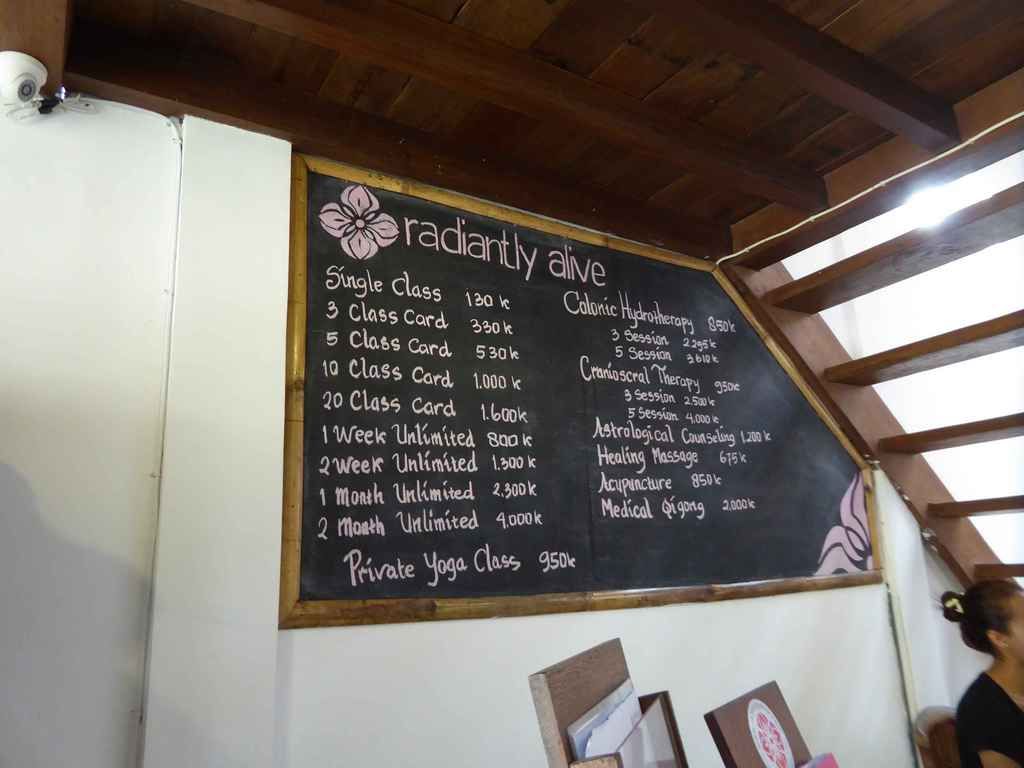 radiantly alive
Single Class 130 k
3 Class Card 330k
5 Class Card 530k
10 Class Card 1.000k
20 Class Card 1.600k
1 Week Unlimited 800k
2 Week Unlimited 1.300k
1 Month Unlimited 2.300k
2 Month Unlimited 4.000k
Private Yoga Class 950k
Colonic Hydrotherapy 850k
3 Session 2.295k
5 Session 3.610k
Cranioscral Therapy 950k
3 Session 2.500k
5 Session 4.000k
Astrological Counseling 1.200k
Healing Massage 675k
Acupuncture 850k
Medical Qigong 2.000k